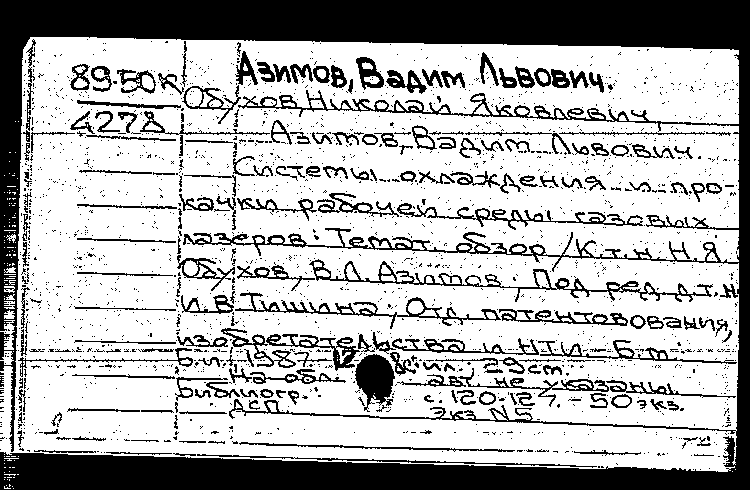 89-50К Азимов, Вадим Львович.
4278 Обухов, Николай Яковлевич,
Азимов, Вадим Львович.
Системы охлаждения и про-
качки рабочей среды газовых
лазеров: Темат. обзор / К.т.н. Н.Я.
Обухов, В.Л. Азимов; Под ред. д.т.н.
И.В Тишина; Отд. патентования,
изобретательства и НТИ.- Б.м.:
Б.и., 1987. 12 ил.; 29см.
На обл. авт. не указаны.
Библиогр.: с. 120-127. - 50 экз.
ДСП Экз N5